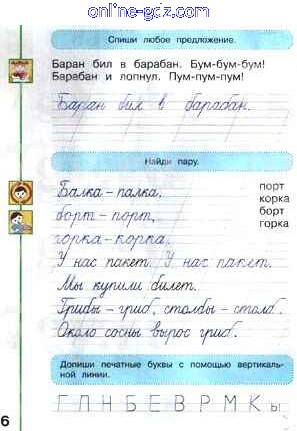 online-gdz.com
Спиши любое предложение.
Баран бил в барабан. Бум-бум-бум!
Барабан и лопнул. Пум-пум-пум!
Баран бил в барабан.
Найди пару.
Балка – палка,
борт – порт,
горка – корка.
У нас пакет. У нас пакет.
Мы купили билет.
Грибы – гриб, столбы – столб.
Около сосны вырос гриб.
порт
корка
борт
горка
Допиши печатные буквы с помощью вертикаль-
ной линии.
Г П Н Б Е В Р М К ы
6